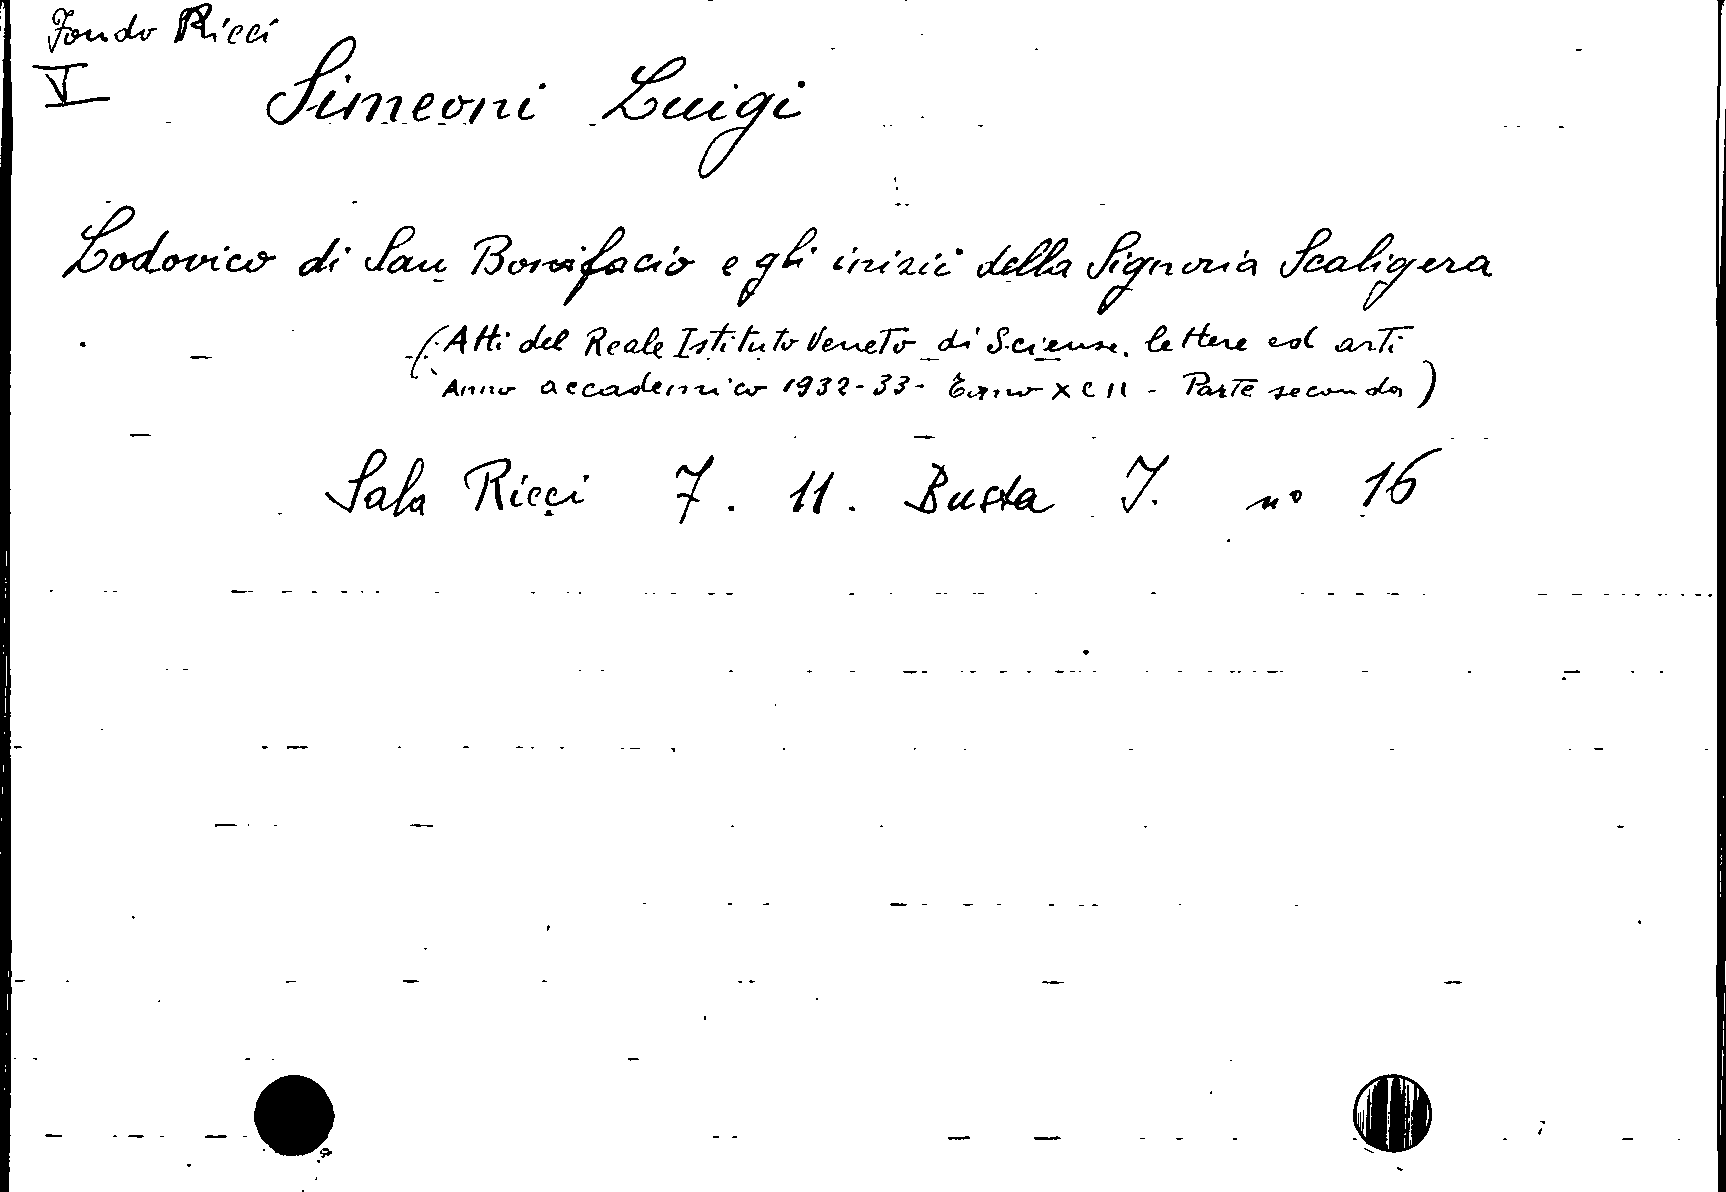 Fondo Ricci
V
Simeoni Luigi
Lodovico di San Bonifacio e gli inizii della Signoria Scaligera
(Atti del Reale Istituto Veneto di Scienze, lettere ed arti
Anno accademico 1932-33 - Tomo XCII - Parte seconda)
Sala Ricci 7. 11. Busta I. n° 16